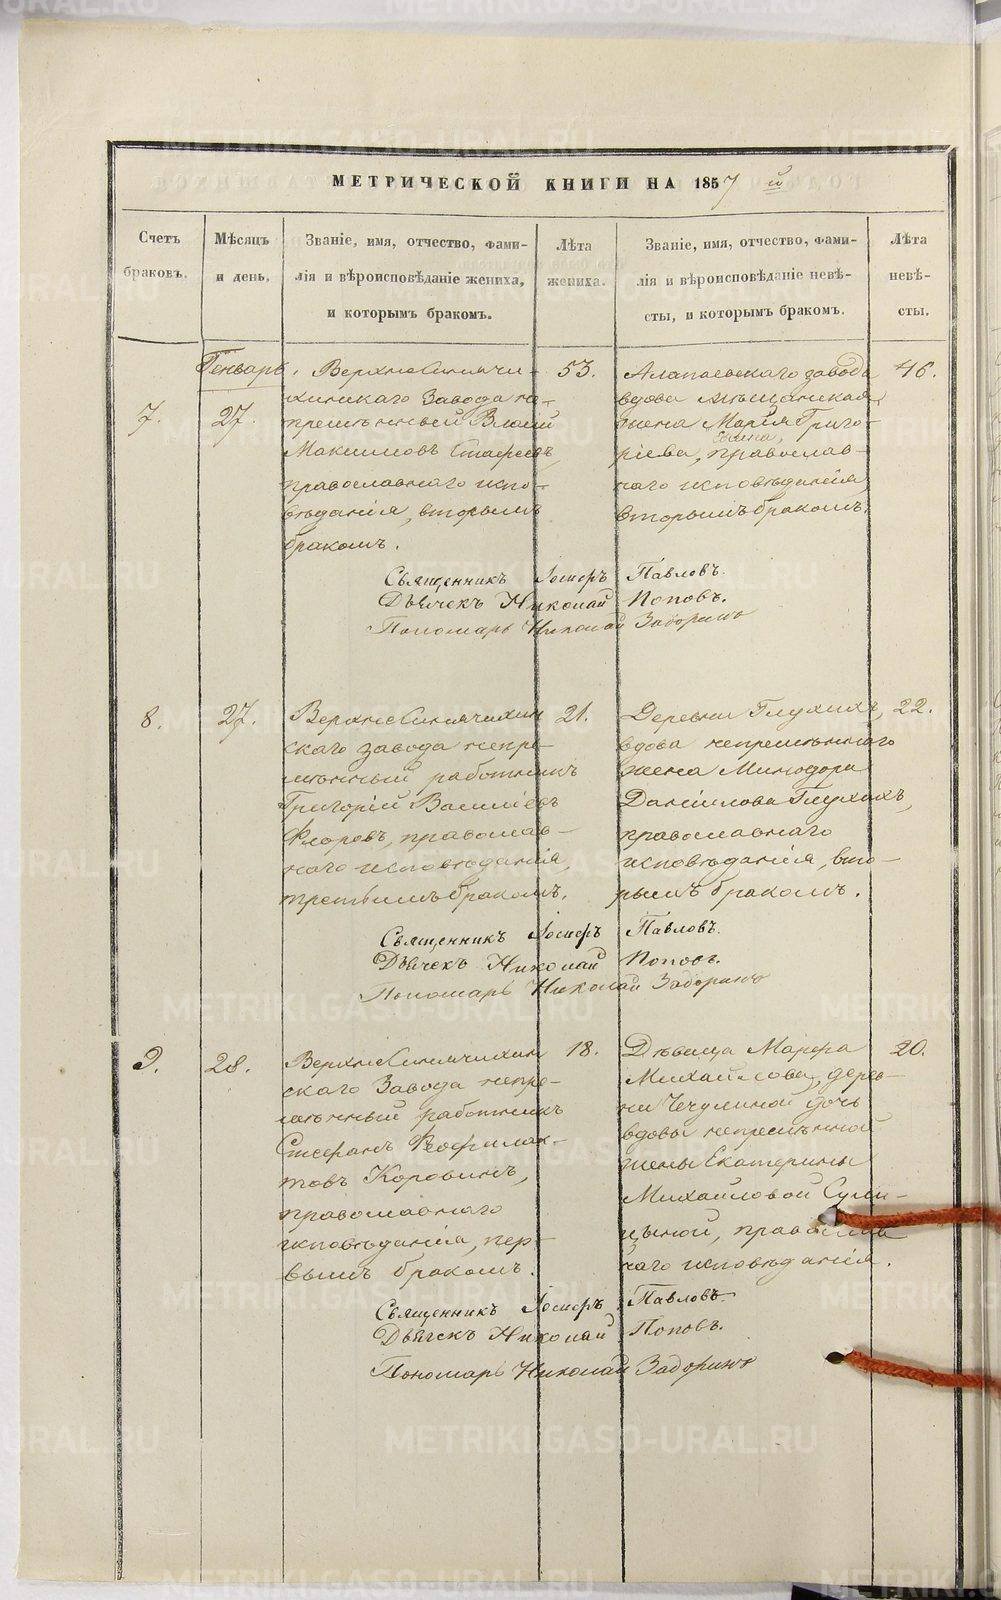 МЕТРИЧЕСКОЙ КНИГИ НА 1857 й
Счетъ браковъ.
Мѣсяцъ и день.
Званіе, имя, отчество, фами-
лія и вѣроисповѣданіе жениха,
и которымъ бракомъ.
Лѣта жениха.
Званіе, имя, отчество, фами-
лія и вѣроисповѣданіе невѣ-
сты, и которымъ бракомъ.
Лѣта невѣ-
сты.
Генварь.
7.
27.
Верхнесинячи-
хинскаго Завода не-
премѣнный Власій
Максимовъ Стафеевъ,
православнаго испо-
вѣданія, вторымъ
бракомъ.
53.
Алапаевскаго завода
вдова мѣщанская
жена Марія Григо-
ріева, православ-
наго исповѣданія,
вторымъ бракомъ.
46.
Священникъ Іосифъ Павловъ.
Дьячекъ Николай Поповъ.
Пономарь Николай Задоринъ
8.
27.
Верхнесинячихин
скаго завода непре-
мѣнный работникъ
Григорій Васильевъ
Флоровъ, православ-
наго исповѣданія,
третьимъ бракомъ.
21.
Деревни Глухихъ,
вдова непремѣннаго
жена Минодора
Даніилова Глухихъ,
православнаго
исповѣданія, вто-
рымъ бракомъ.
22.
Священникъ Іосифъ Павловъ.
Дьячекъ Николай Поповъ.
Пономарь Николай Задоринъ
9.
28.
Верхнесинячихин
скаго Завода непре-
мѣнный работникъ
Стефанъ Феофилак-
товъ Коровинъ,
православнаго
исповѣданія, пер-
вымъ бракомъ.
18.
Дѣвица Марфа
Михайлова, дерев-
ни Чечулиной дочь
вдовы непремѣнной
жены Екатерины
Михайловой
православ
наго исповѣданія.
20.
Священникъ Іосифъ Павловъ
Дьячекъ Николай Поповъ.
Пономарь Николай Задоринъ
METRIKI.GASO-URAL.RU